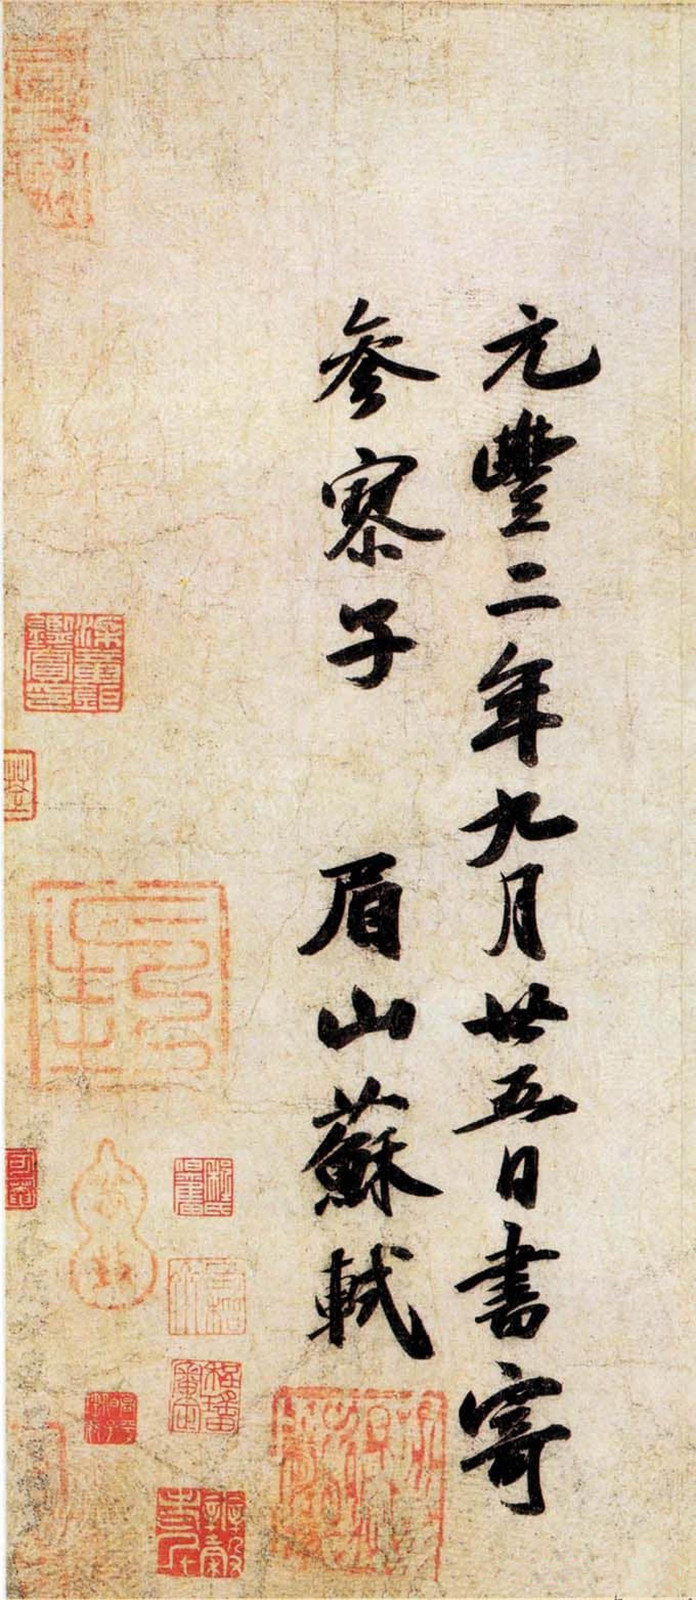 元豐二年九月廿五日書寄
參寥子 眉山蘇軾